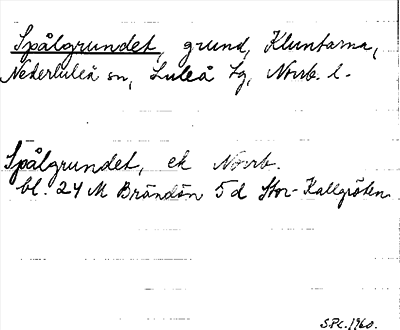 Spålgrundet, grund, Kluntarna,
Nederluleå sn, Luleå tg, Norrb. l.
Spålgrundet, ek Norrb.
bl. 24 M Brändön 5 d Stor-Kallgröten
SPC. 1960.